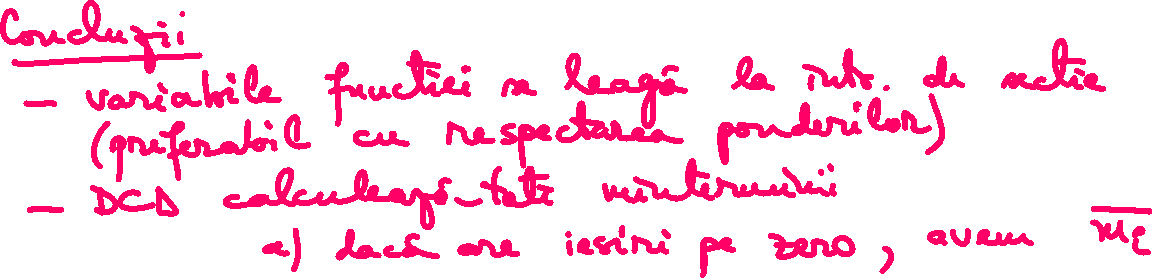 Concluzii
– variabile funcției se leagă la intr. de selecție
(preferabil cu respectarea ponderilor)
– DCD calculează toți mintermii
a) dacă are ieșiri pe zero, avem m̅ᵢ